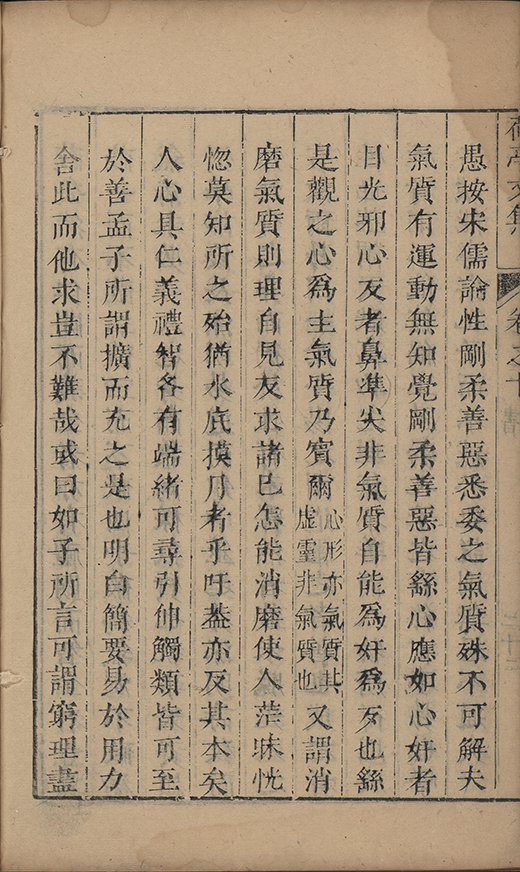 卷之十
愚按宋儒論性剛柔善惡悉委之氣質殊不可解夫
氣質有運動無知覺剛柔善惡皆繇心應如心奸者
目光邪心反者鼻準尖非氣質自能爲奸爲歹也繇
是觀之心爲主氣質乃賓爾心形亦氣質其虛靈非氣質也又謂消
磨氣質則理自見反求諸已怎能消磨使人茫昧恍
惚莫知所之殆猶水底摸月者乎吁葢亦反其本矣
人心具仁義禮智各有端緒可尋引伸觸類皆可至
於善孟子所謂擴而充之是也明白簡要易於用力
舍此而他求豈不難哉或曰如子所言可謂窮理盡